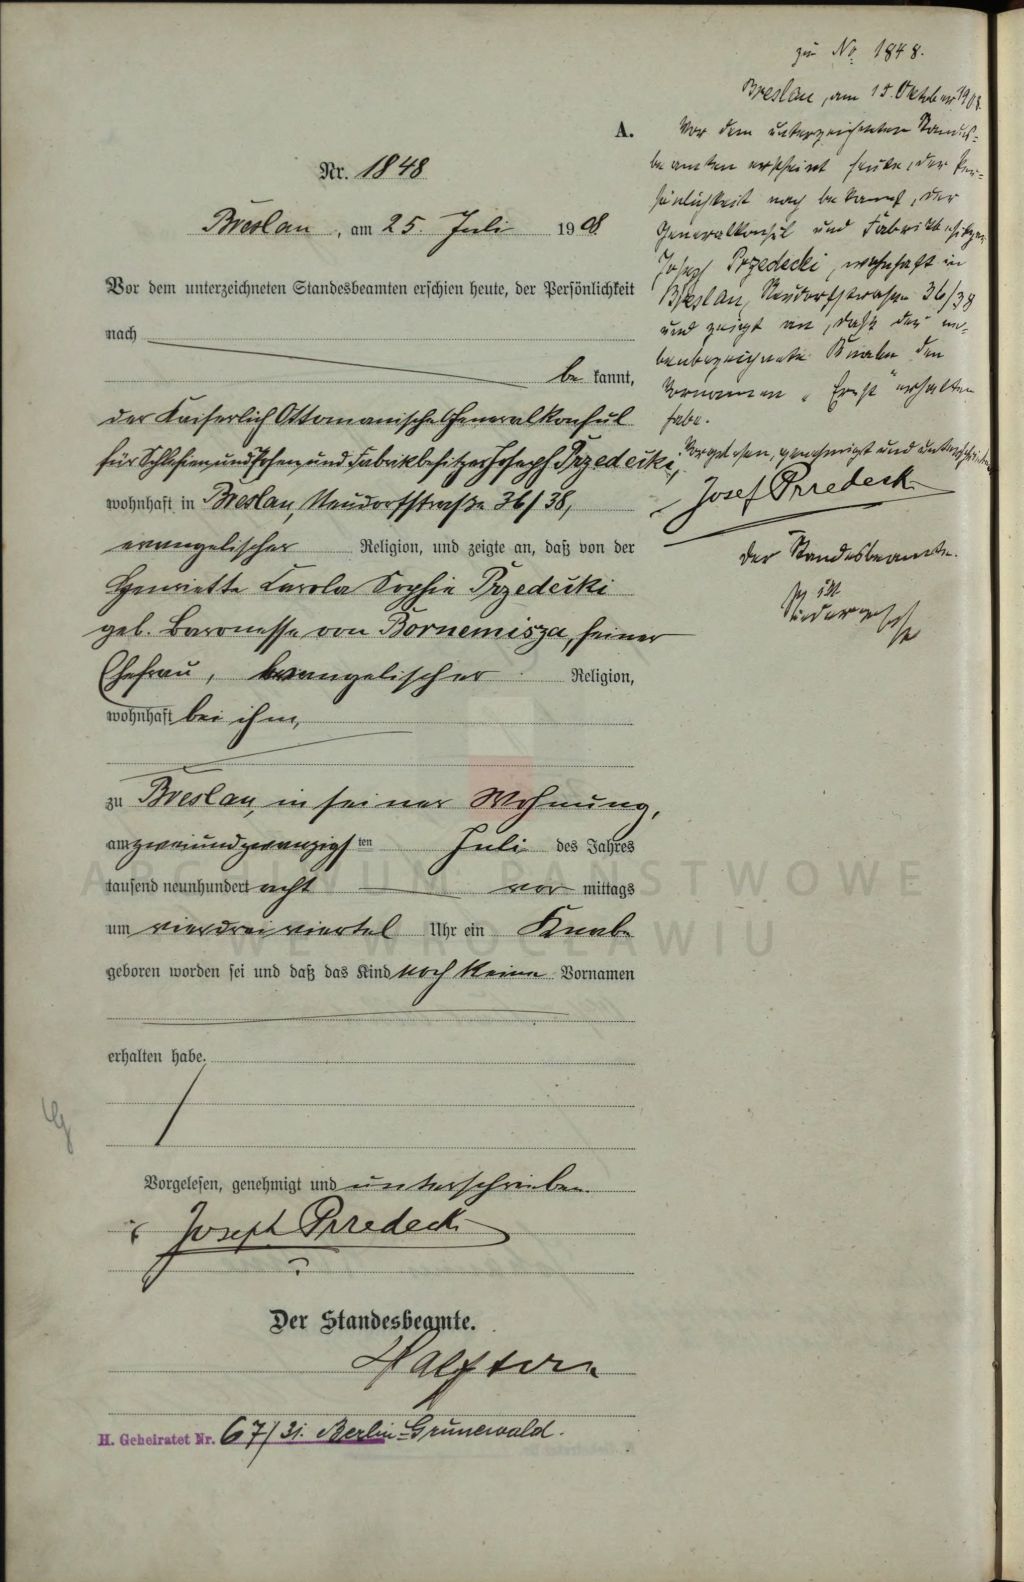 A.
Nr. 1848
Breslau, am 25. Juli 1908.
Vor dem unterzeichneten Standesbeamten erschien heute, der Persönlichkeit
nach
be kannt,
der Kaiserlich Ottomanische Generalkonsul
für Schlesien und Posen und Fabrikbesitzer Joseph Przedecki,
wohnhaft in Breslau, Neudorfstraße 36/38,
evangelischer Religion, und zeigte an, daß von der
Henriette Karola Sophie Przedecki
geb. Baronesse von Bornemisza, seiner
Ehefrau, evangelischer Religion,
wohnhaft bei ihm,
zu Breslau, in seiner Wohnung,
am zweiundzwanzigsten Juli des Jahres
tausend neunhundert acht vor mittags
um vierdreiviertel Uhr ein Knabe
geboren worden sei und daß das Kind noch keinen Vornamen
erhalten habe.
Vorgelesen, genehmigt und unterschrieben
Joseph Przedecki
Der Standesbeamte.
H. Geheiratet Nr. 67/31. Berlin-Grunewald.
zu No. 1848.
Breslau, am 15. Oktober 1908.
Vor dem unterzeichneten Standes-
beamten erscheint heute, der Per-
sönlichkeit nach bekannt, der
Generalkonsul und Fabrikbesitzer
Joseph Przedecki, wohnhaft in
Breslau, Neudorfstrasse 36/38
und zeigt an, daß der ne-
benbezeichnete Knabe den
Vornamen „Ernst" erhalten
habe.
Vorgelesen, genehmigt und unterschrieben
Josef Przedecki
Der Standesbeamte.
ARCHIWUM PAŃSTWOWE
WE WROCŁAWIU